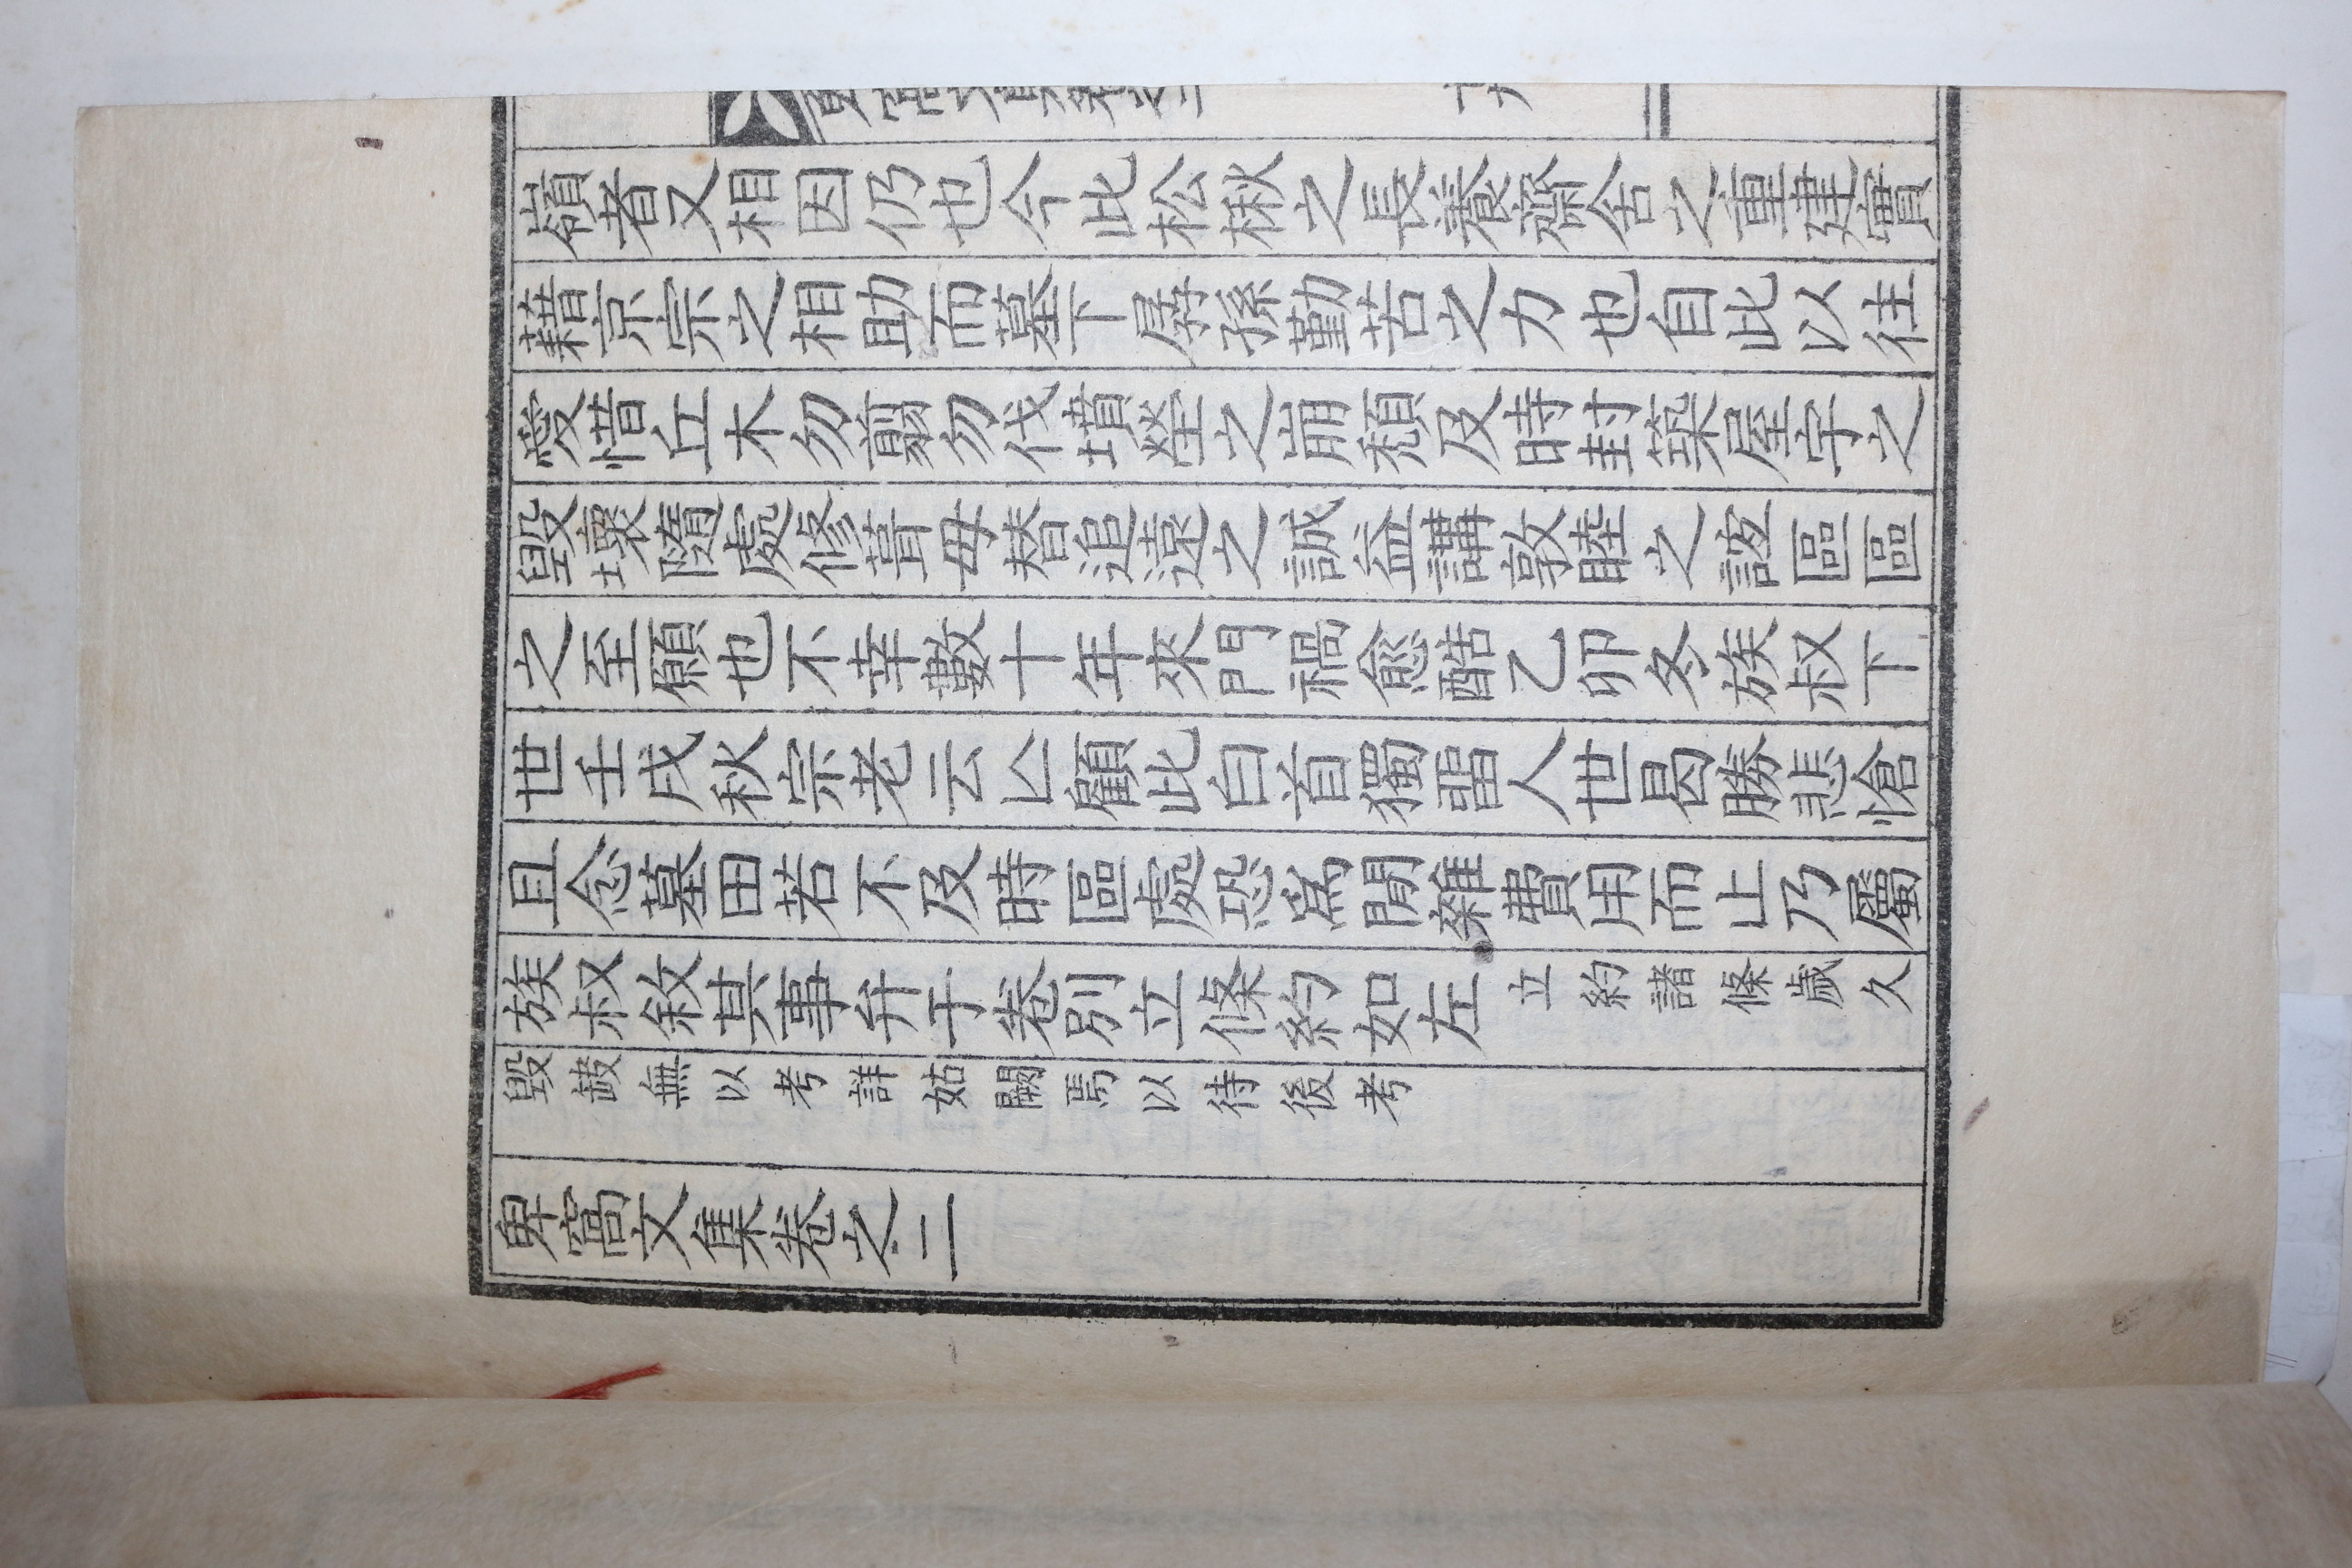 嶺者又相因仍也今此松楸之長養齋舍之重建實
藉京宗之相助而墓下孱孫勤苦之力也自此以往
愛惜丘木勿翦勿伐墳塋之崩頹及時封築屋宇之
毀壞隨處修葺毋替追遠之誠益講敦睦之誼區區
之至願也不幸數十年來門禍愈酷乙卯冬族叔下
世壬戌秋宗老云亾顧此白首獨畱人世曷勝悲愴
且念墓田若不及時區處恐爲閒雜費用而止乃屬
族叔敘其事弁于卷別立條約如左立約諸條歲久
毀缺無以考詳姑闕焉以待後考
卑窩文集卷之二